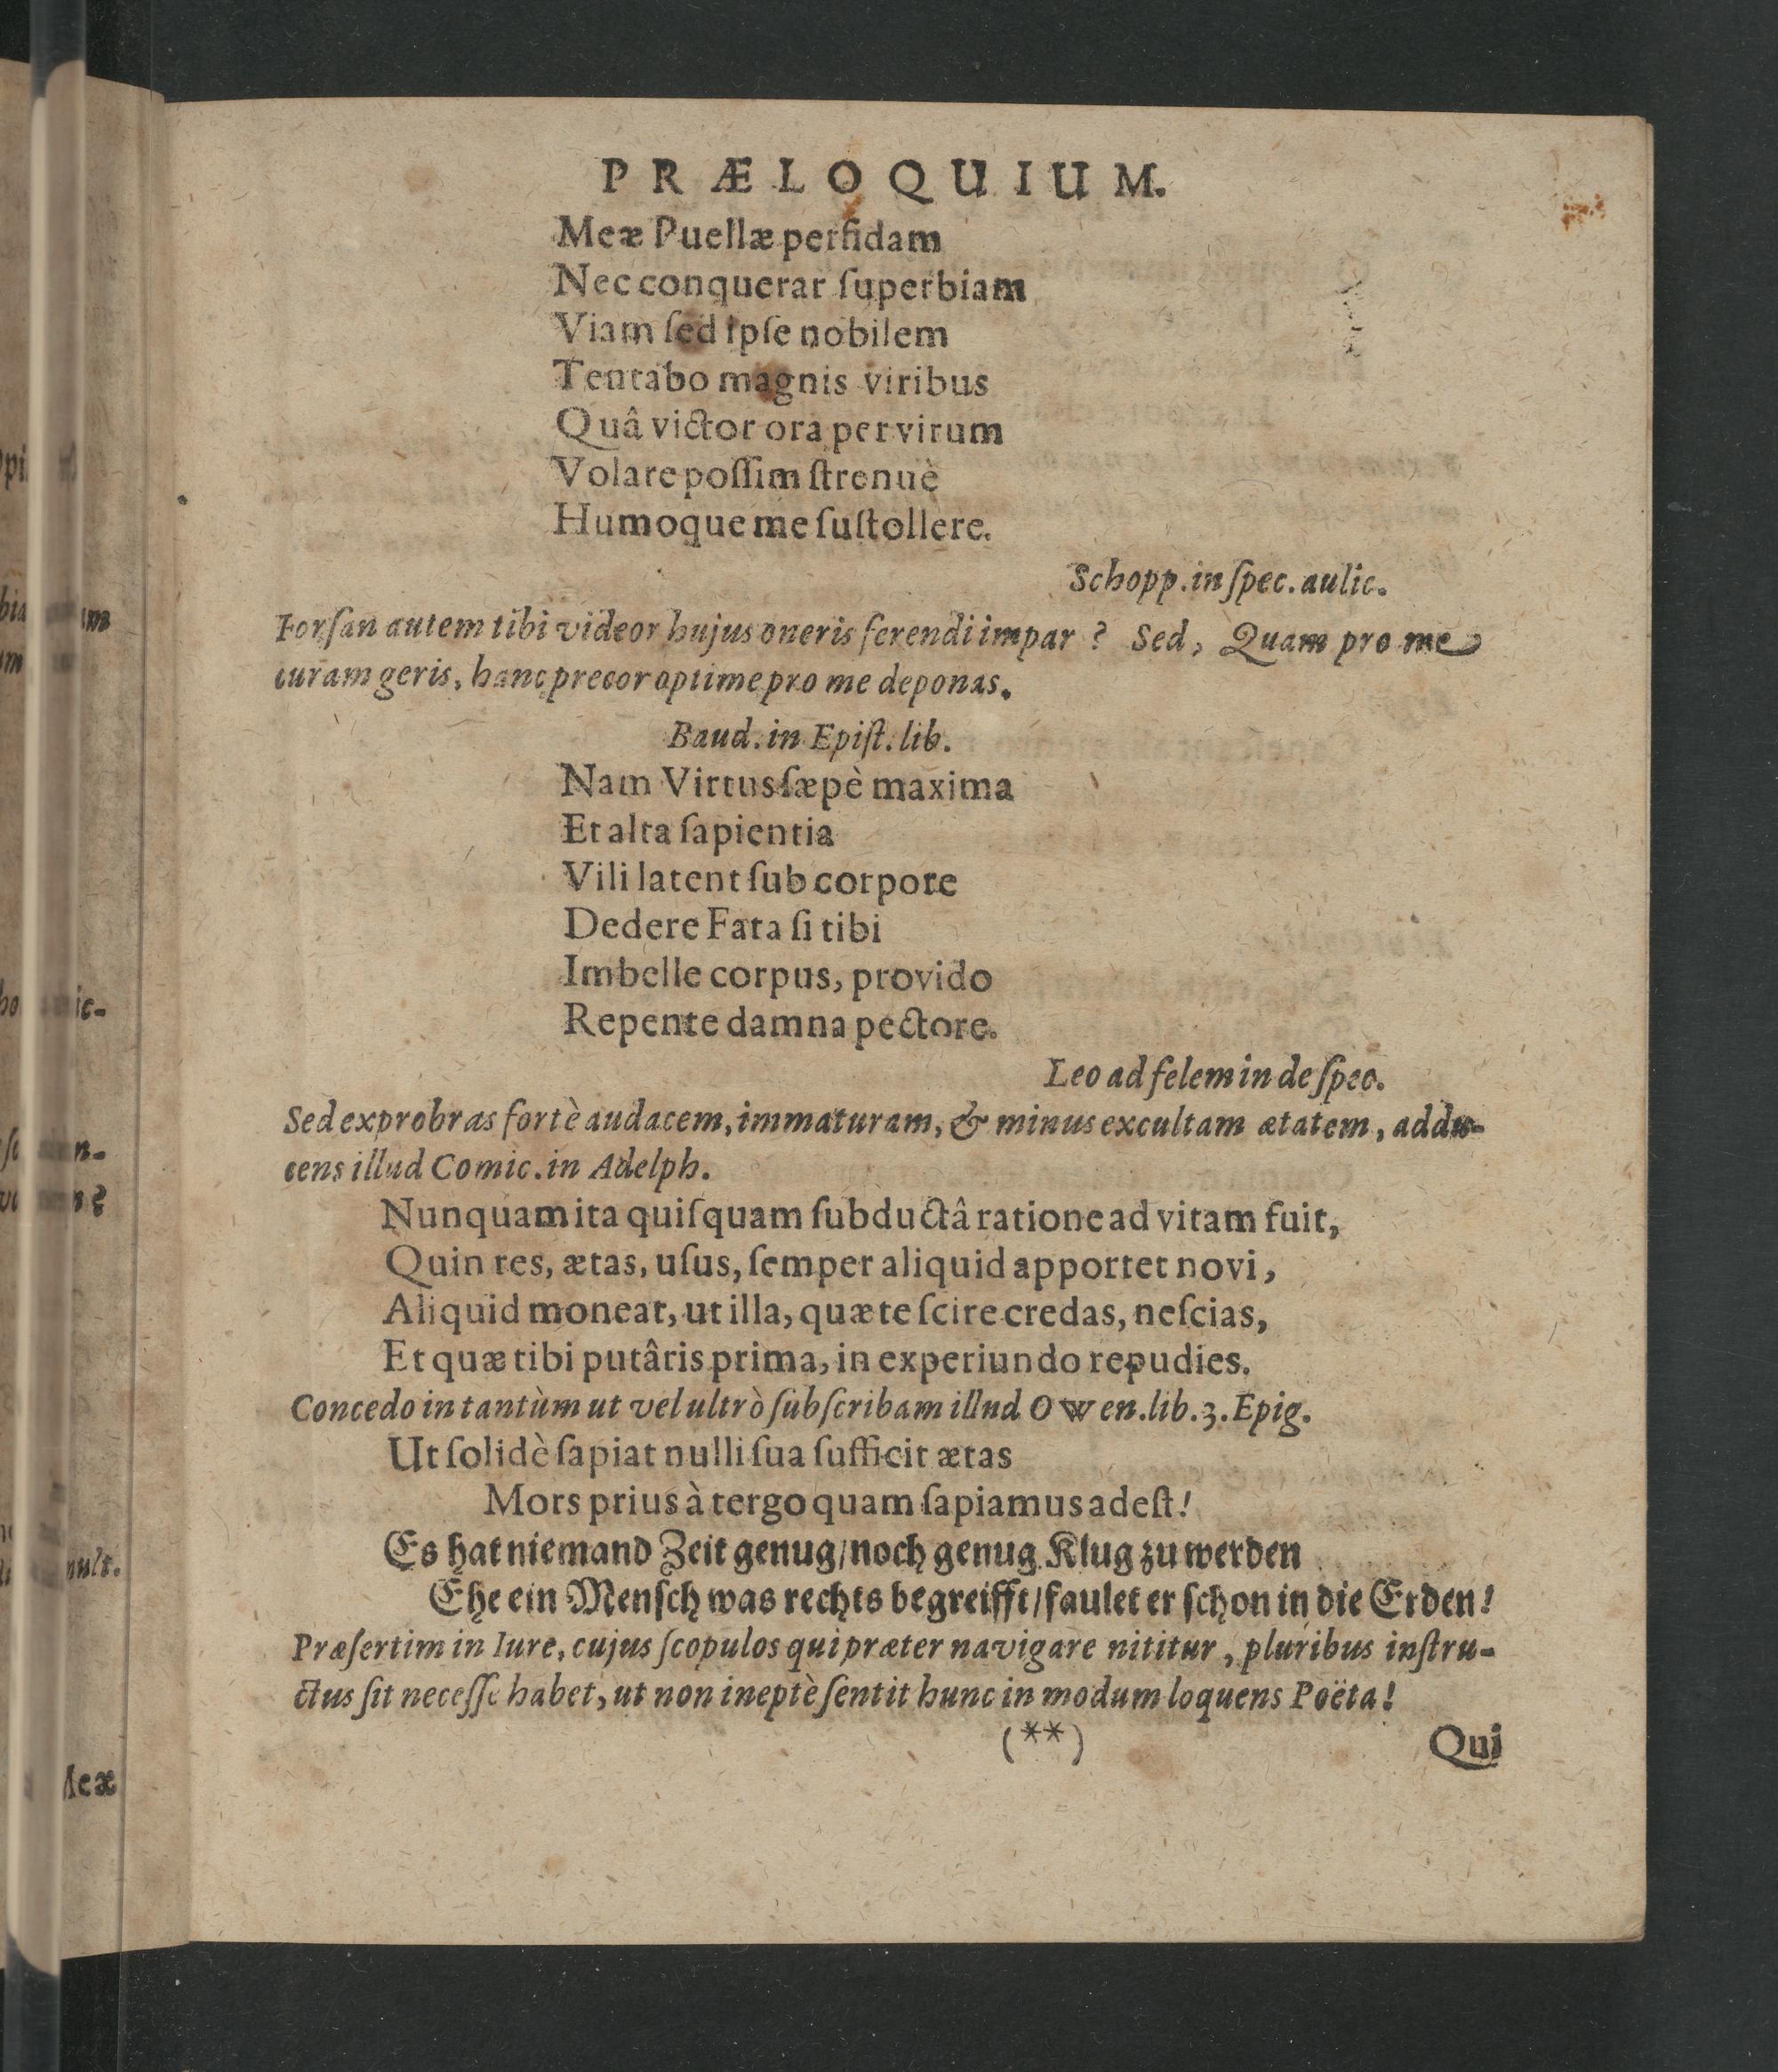 PRÆLOQUIUM.
Meæ Puellæ perfidam
Nec conquerar ſuperbiam
Viam ſed ipſe nobilem
Tentabo magnis viribus
Quâ victor ora per virum
Volare poſſim ſtrenuè
Humoque me ſuſtollere.
Schopp. in ſpec. aulic.
Forſan autem tibi videor hujus oneris ferendi impar? Sed, Quam pro me
curam geris, hanc precor optime pro me deponas.
Baud. in Epiſt. lib.
Nam Virtus ſæpè maxima
Et alta ſapientia
Vili latent ſub corpore
Dedere Fata ſi tibi
Imbelle corpus, provido
Repente damna pectore.
Leo ad felem in de ſpec.
Sed exprobras fortè audacem, immaturam, & minus excultam ætatem, addu-
cens illud Comic. in Adelph.
Nunquam ita quiſquam ſubductâ ratione ad vitam fuit,
Quin res, ætas, uſus, ſemper aliquid apportet novi,
Aliquid moneat, ut illa, quæ te ſcire credas, neſcias,
Et quæ tibi putâris prima, in experiundo repudies.
Concedo in tantùm ut vel ultrò ſubſcribam illud Owen. lib. 3. Epig.
Ut ſolidè ſapiat nulli ſua ſufficit ætas
Mors prius à tergo quam ſapiamus adeſt!
Es hat niemand Zeit genug/ noch genug Klug zu werden
Ehe ein Menſch was rechts begreifft/ faulet er ſchon in die Erden!
Præſertim in Iure, cujus ſcopulos qui præter navigare nititur, pluribus inſtru-
ctus ſit neceſſe habet, ut non ineptè ſentit hunc in modum loquens Poëta!
(**)
Qui